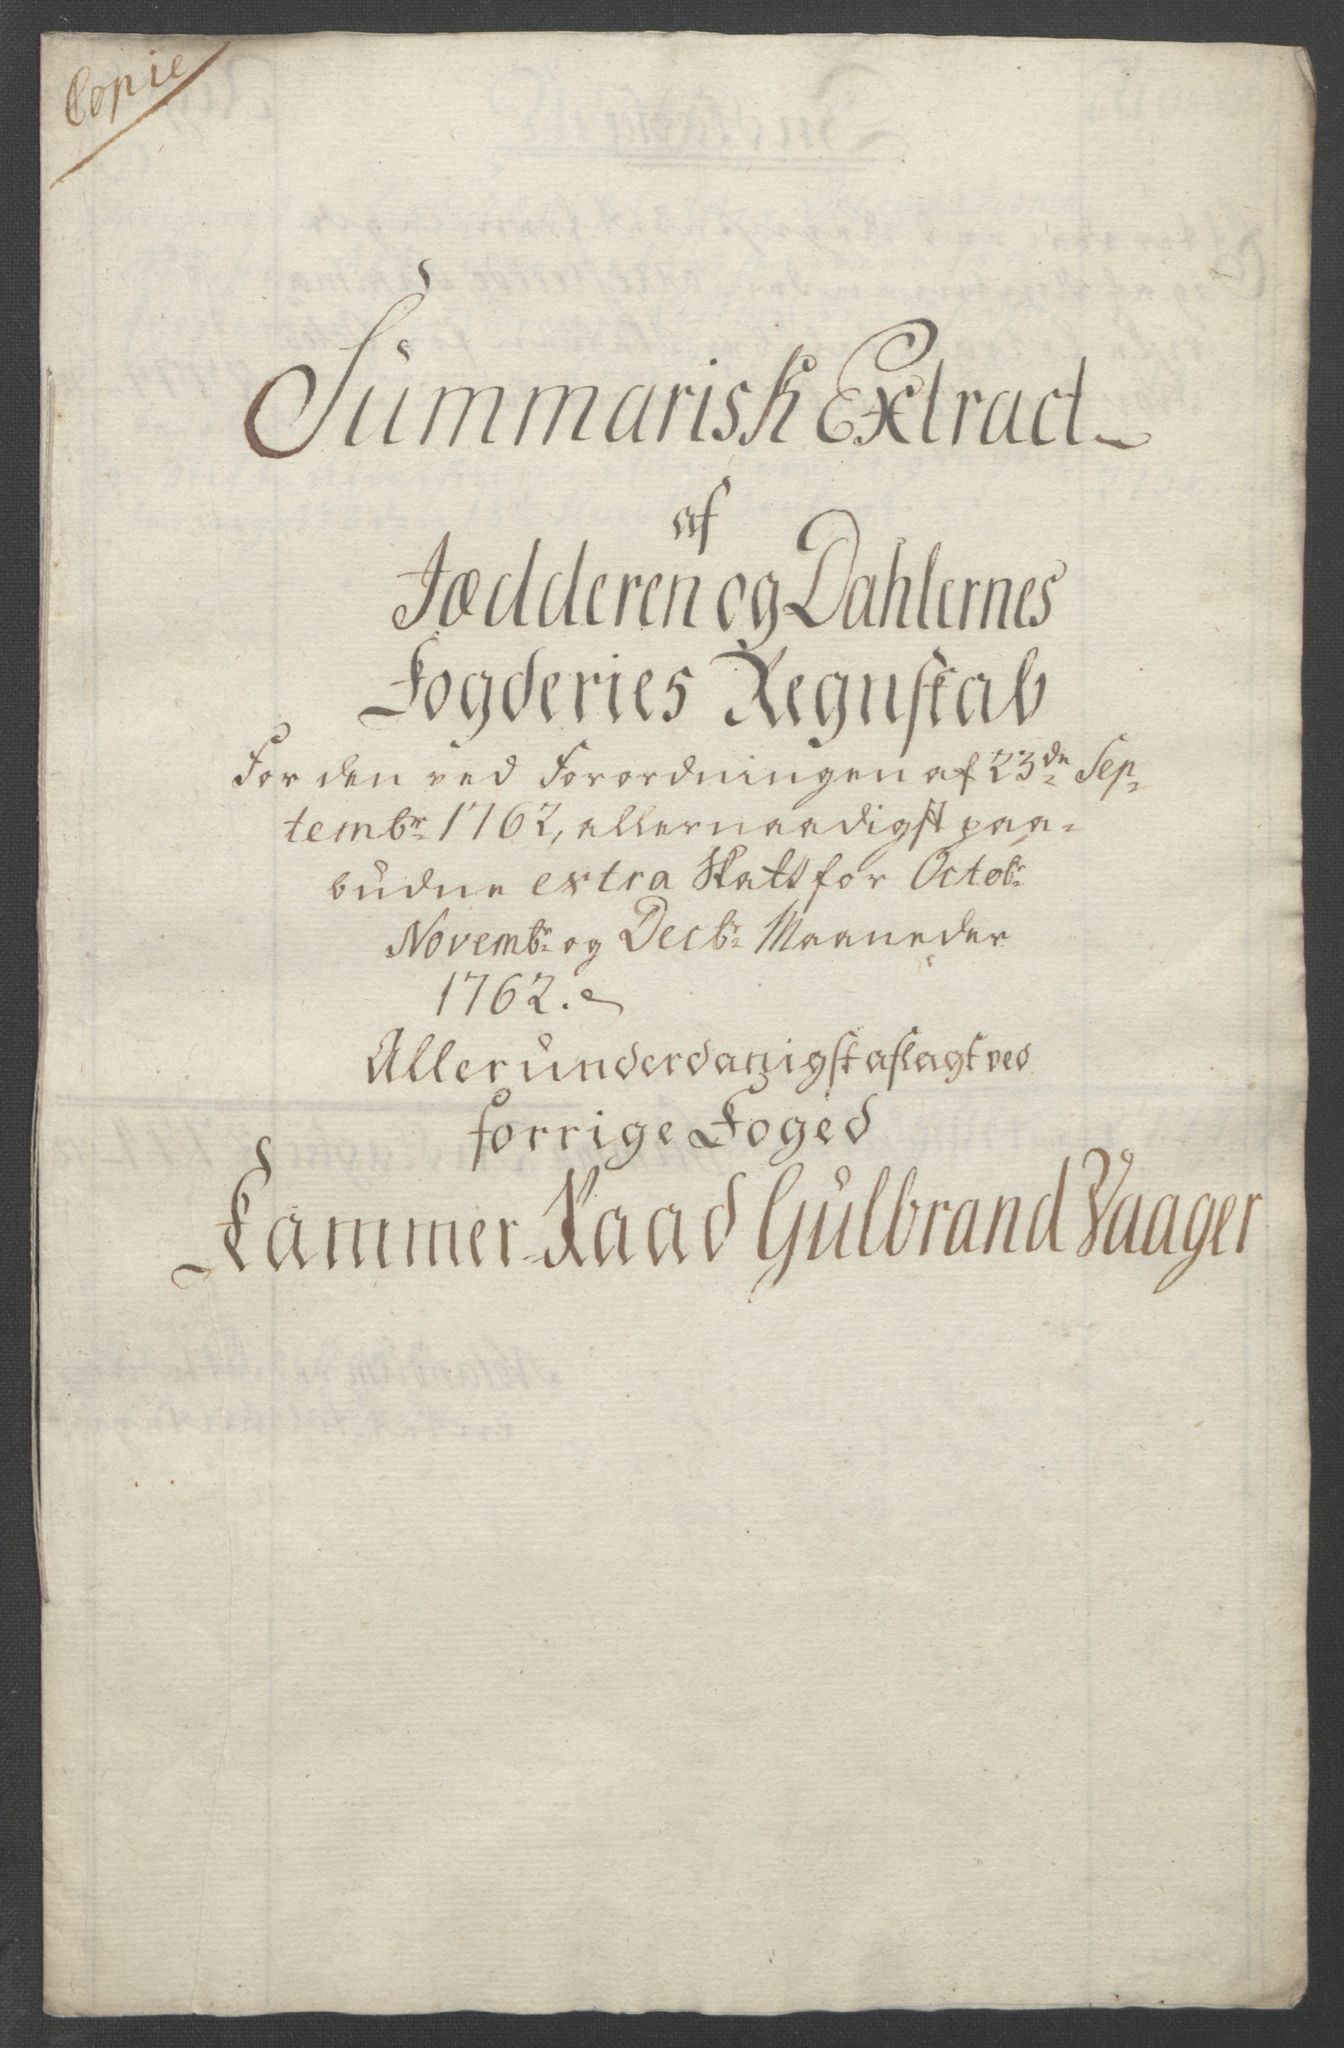 Copie
Summarisk Extract
af
Jædderen og Dahlernes
Fogderies Regnskab
For den ved Forordningen af 23de Sep-
tembr 1762, allernaadigst paa-
budne extra Skatt for Octobr
Novembr og Decbr Maaneder
1762.
Allerunderdanigst aflagt ved
forrige Foged
Cammer-Raad Gulbrand Vaager